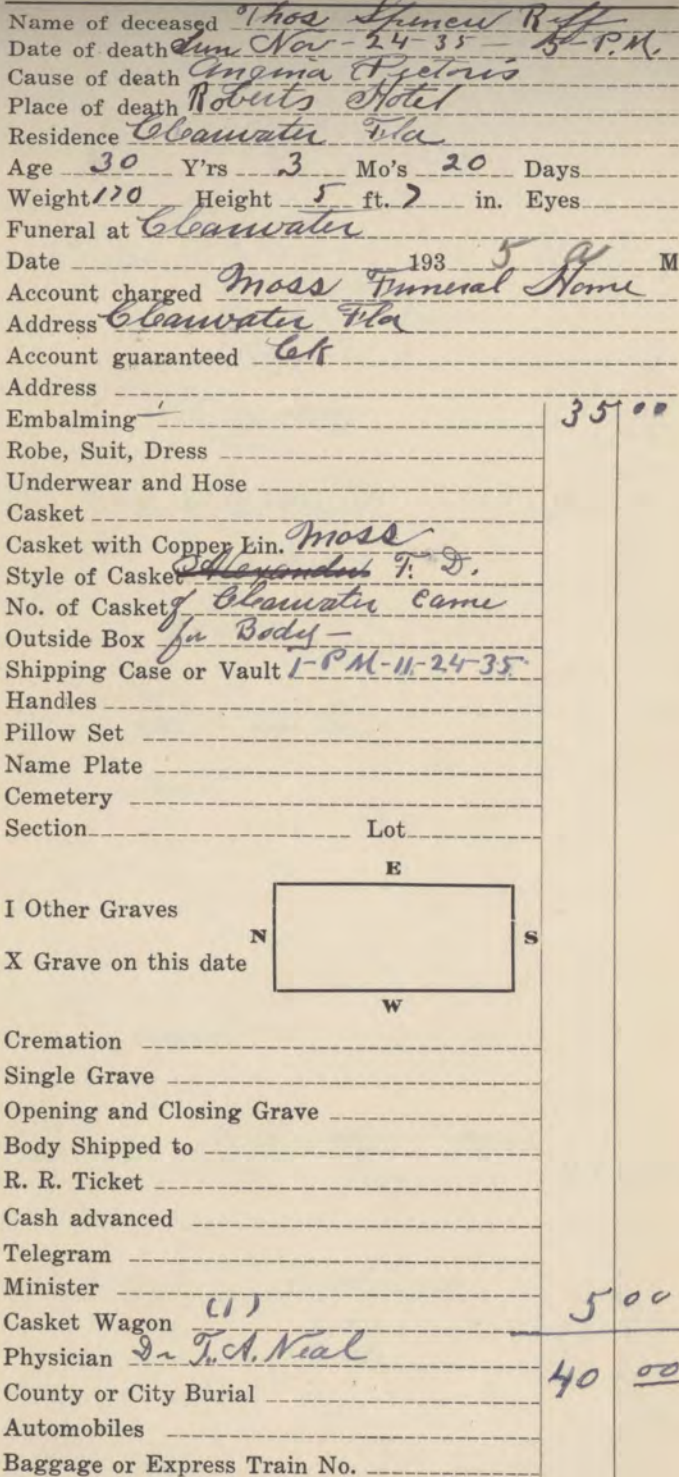 Name of deceased Thos Spencer Riff
Date of death Sun Nov - 24 - 35 - 5 - P.M.
Cause of death Angina Pectoris
Place of death Roberts Hotel
Residence Clearwater Fla
Age 30 Y'rs 3 Mo's 20 Days
Weight 170 Height 5 ft. 7 in. Eyes
Funeral at Clearwater
Date 193 5 a M
Account charged Moss Funeral Home
Address Clearwater Fla
Account guaranteed Ck
Address
Embalming 35 00
Robe, Suit, Dress
Underwear and Hose
Casket
Casket with Copper Lin. Moss
Style of Casket Alexander F. D.
No. of Casket of Clearwater Came
Outside Box for Body -
Shipping Case or Vault 1-PM-11-24-35
Handles
Pillow Set
Name Plate
Cemetery
Section Lot
E
I Other Graves
N S
X Grave on this date
W
Cremation
Single Grave
Opening and Closing Grave
Body Shipped to
R. R. Ticket
Cash advanced
Telegram
Minister
Casket Wagon (1) 5 00
Physician Dr T. A. Neal
40 00
County or City Burial
Automobiles
Baggage or Express Train No.